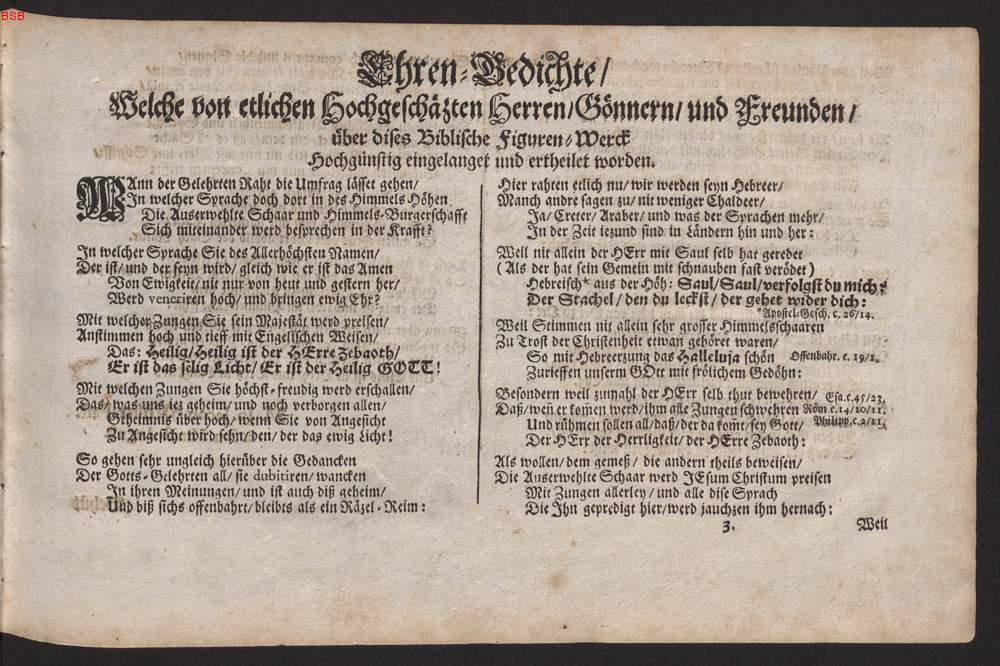 BSB
Ehren-Gedichte/
Welche von etlichen Hochgeschäzten Herren/Gönnern/ und Freunden/
über dises Biblische Figuren-Werck
Hochgünstig eingelanget und ertheilet worden.
WAnn der Gelehrten Raht die Umfrag lässet gehen/
In welcher Sprache doch dort in des Himmels Höhen
Die Auserwehlte Schaar und Himmels-Burgerschafft
Sich miteinander werd besprechen in der Krafft?
In welcher Sprache Sie des Allerhöchsten Namen/
Der ist/ und der seyn wird/ gleich wie er ist das Amen
Von Ewigkeit/ nit nur von heut und gestern her/
Werd veneriren hoch/ und bringen ewig Ehr?
Mit welcher Zungen Sie sein Majestät werd preisen/
Anstimmen hoch und tieff mit Englischen Weisen/
Das: Heilig/Heilig ist der HErre Zebaoth/
Er ist das selig Licht/ Er ist der Heilig GOTT!
Mit welchen Zungen Sie höchst-freudig werd erschallen/
Das/ was uns iez geheim/ und noch verborgen allen/
Geheimnis über hoch/ wenn Sie von Angesicht
Zu Angesicht wird sehn/ den/ der das ewig Licht!
So gehen sehr ungleich hierüber die Gedancken
Der Gotts-Gelehrten all/ sie dubitiren/ wancken
In ihren Meinungen/ und ist auch diß geheim/
Und biß sichs offenbahrt/ bleibts als ein Räzel-Reim:
Hier rahten etlich nu/ wir werden seyn Hebreer/
Manch andre sagen zu/ nit weniger Chaldeer/
Ja/ Creter/ Araber/ und was der Sprachen mehr/
In der Zeit iezund sind in Ländern hin und her:
Weil nit allein der HErr mit Saul selb hat geredet
(Als der hat sein Gemein mit schnauben fast verödet)
Hebreisch* aus der Höh: Saul/Saul/verfolgst du mich?
Der Stachel/ den du leckst/ der gehet wider dich:
*Apostel-Gesch. c. 26/14.
Weil Stimmen nit allein sehr grosser Himmelsschaaren
Zu Trost der Christenheit etwan gehöret waren/
So mit Hebreerzung das Halleluja schön Offenbahr. c. 19/1.
Zurieffen unserm GOtt mit frölichem Gedöhn:
Besondern weil zumahl der HErr selb thut bewehren/ Esa. c. 45/23.
Daß/ weñ er kom̃en werd/ ihm alle Zungen schwehren Röm. c. 14/10/11.
Und rühmen sollen all/ daß/ der da kom̃t/ sey Gott/ Philipp. c. 2/11.
Der HErr der Herrligkeit/ der HErre Zebaoth:
Als wollen/ dem gemeß/ die andern theils beweisen/
Die Auserwehlte Schaar werd JEsum Christum preisen
Mit Zungen allerley/ und alle dise Sprach
Die Ihn gepredigt hier/werd jauchzen ihm hernach:
3. Weil